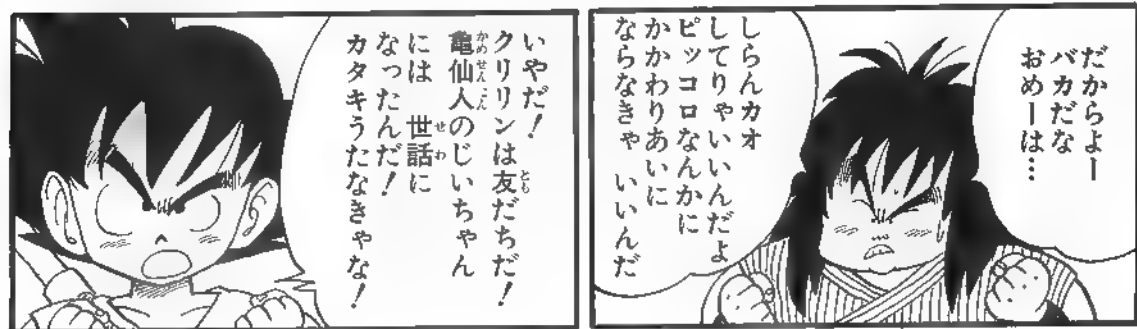 だからよー
バカだな
おめーは…
しらんカオ
してりゃいいんだよ
ピッコロなんかに
かかわりあいに
ならなきゃ　いいんだ
いやだ！
クリリンは友だちだ！
亀仙人のじいちゃん
には　世話に
なったんだ！
カタキうたなきゃな！